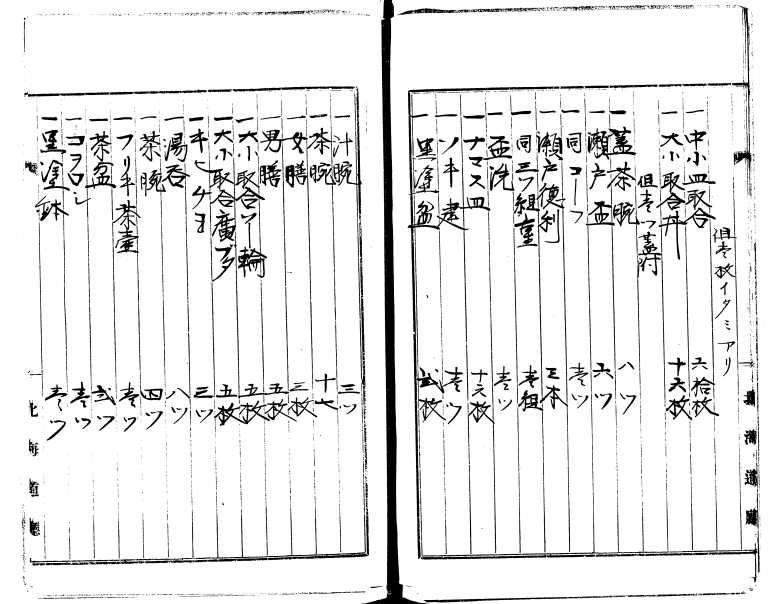 一中小皿取合 六拾枚
但壱枚イタミアリ
一大小取合丼 十六枚
但壱ツ蓋付
一蓋茶碗 八ツ
一瀬戸盃 六ツ
一同コーフ 壱ツ
一瀬戸徳利 三本
一同三ツ組重 壱組
一盃洗 壱ツ
一ナマス皿 十六枚
一ソキ建 壱ツ
一黒塗盆 弐枚
北海道廳
一汁腕 三ツ
一茶腕 十七
一女膳 三枚
一男膳 五枚
一大小取合ツー輪 五枚
一大小取合廣ブタ 五枚
一キヒチヨ 三ツ
一湯呑 八ツ
一茶碗 四ツ
一フリキ茶壷 壱ツ
一茶盆 弐ツ
一コヲロシ 壱ツ
一黒塗鉢 壱ツ
北海道廳